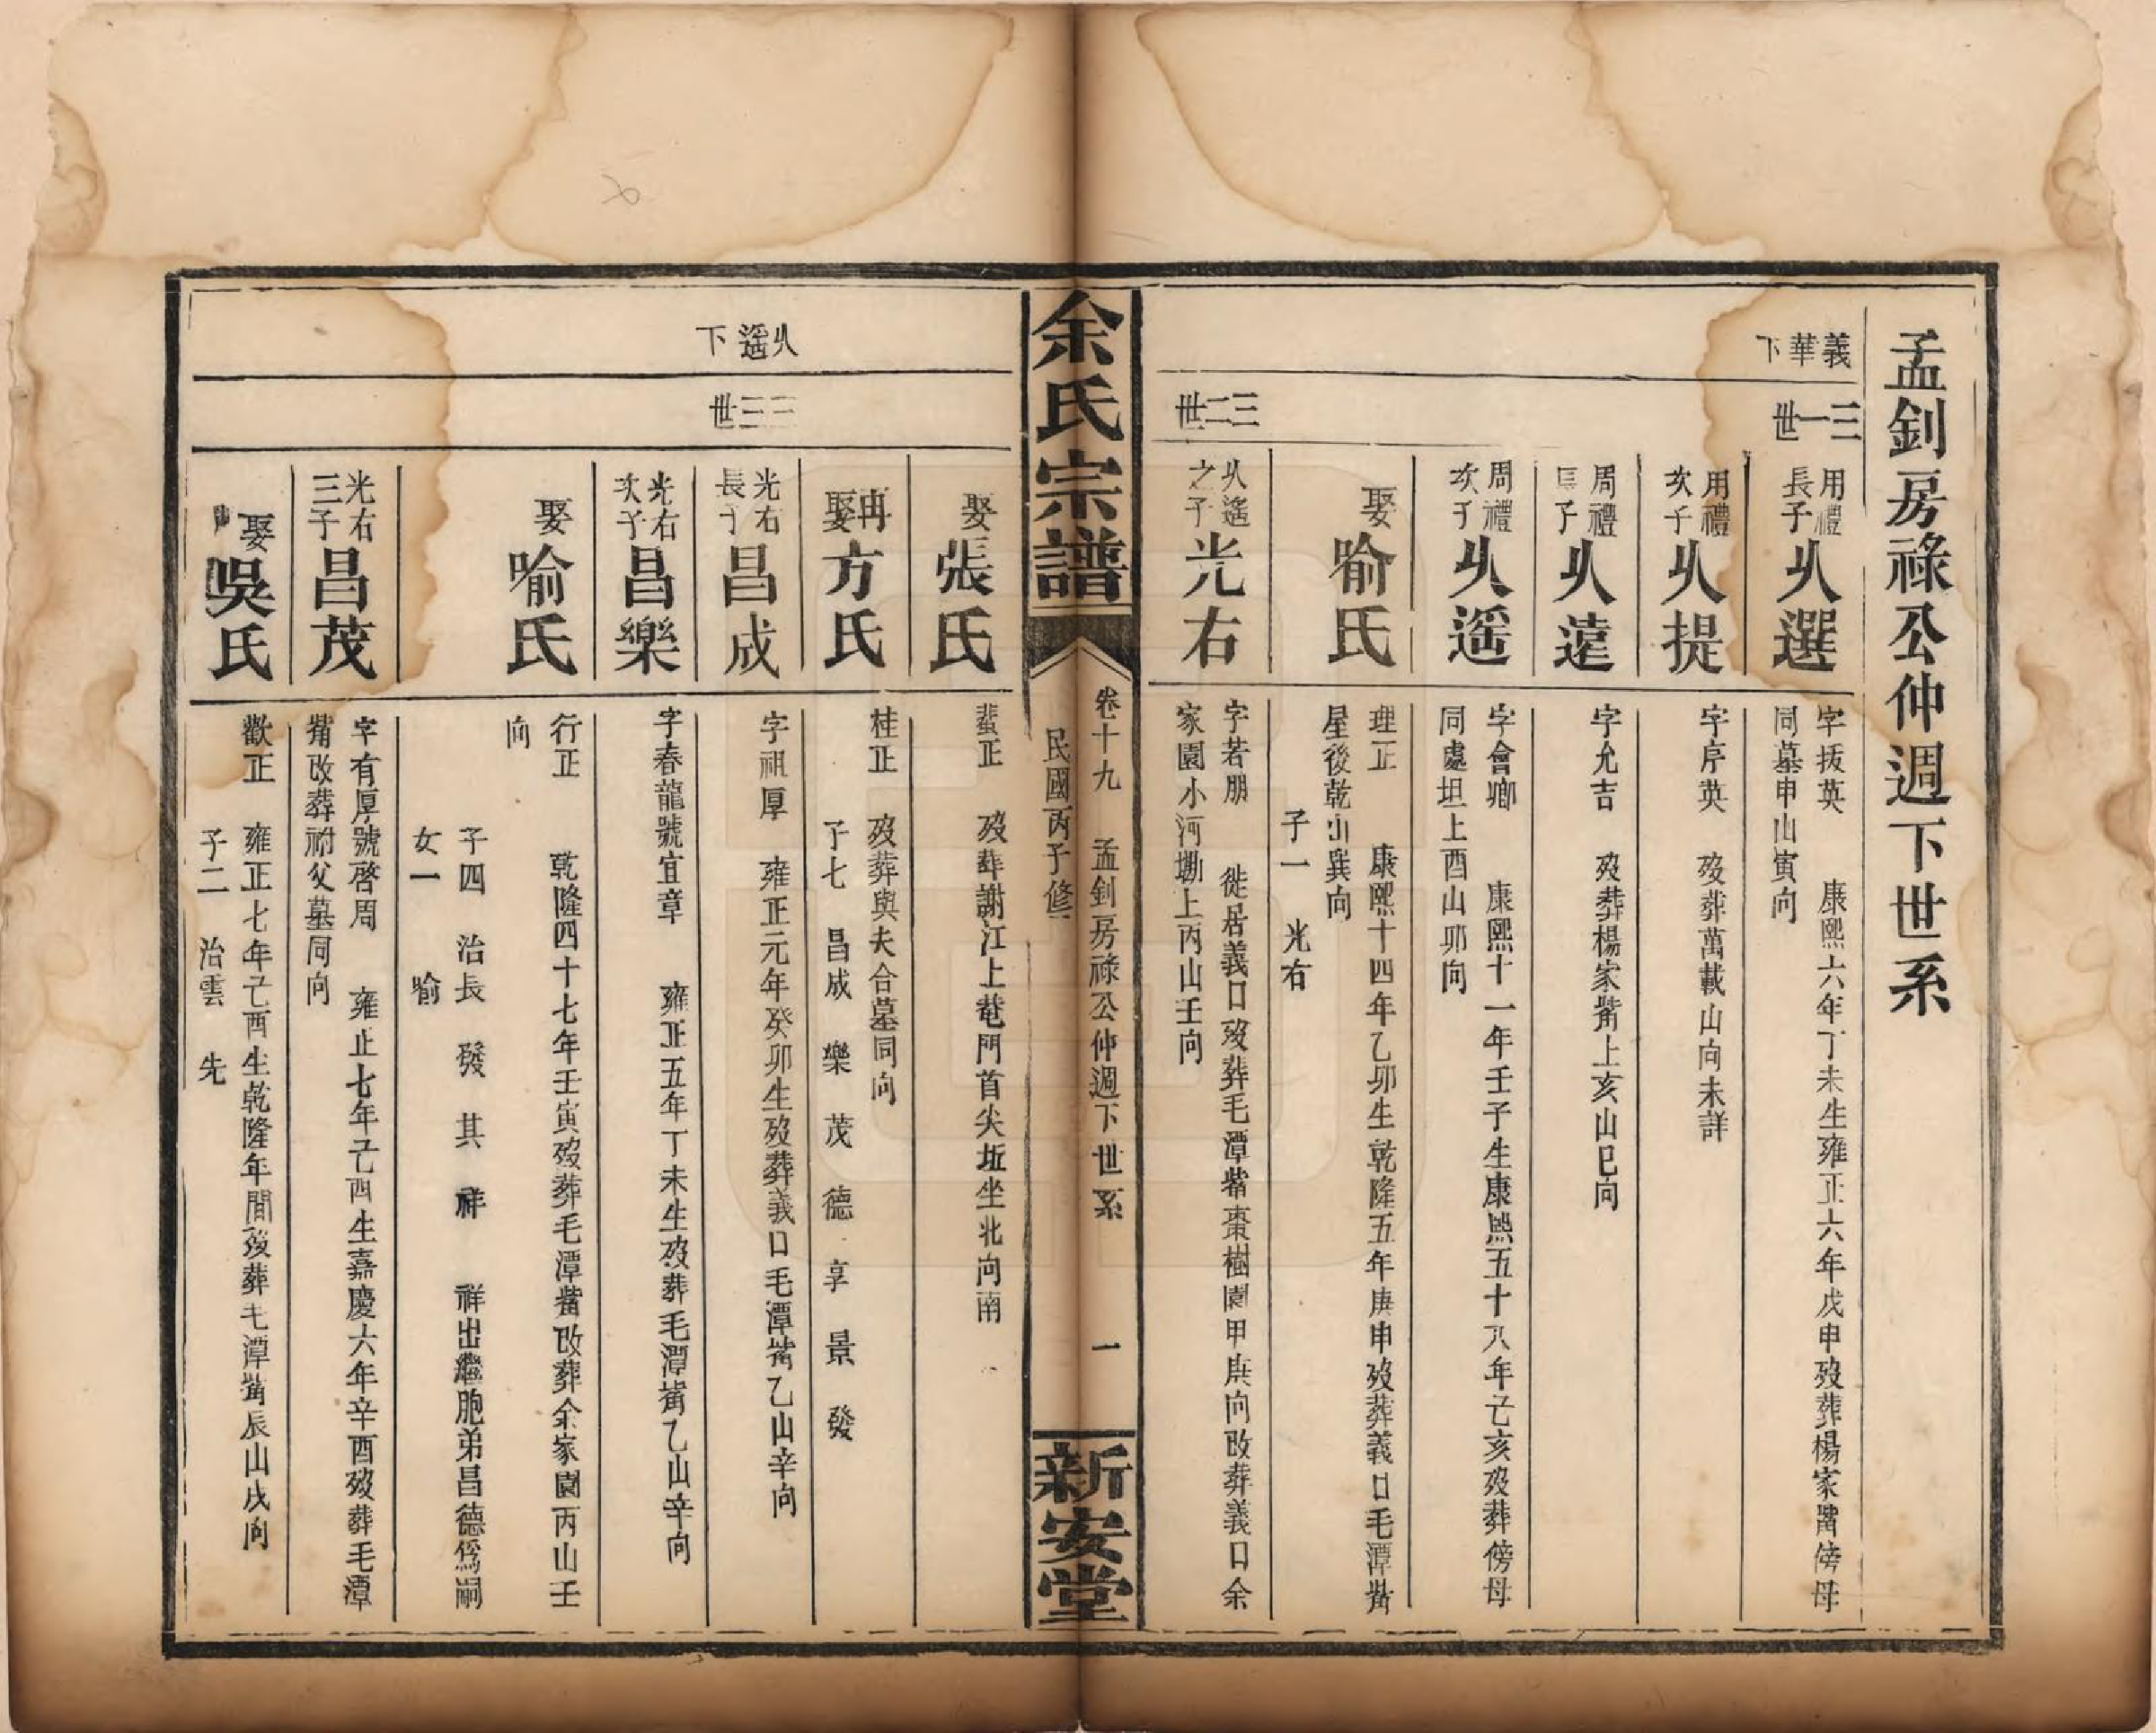 孟釗房祿公仲週下世系
義華下
三一世
用禮長子
㕥選
字拔英 康熙六年丁未生雍正六年戊申歿葬楊家嘴傍母
同墓申山寅向
用禮次子
㕥提
字序英 歿葬萬載山向未詳
周禮長子
㕥遠
字允吉 歿葬楊家嘴上亥山巳向
周禮次子
㕥遥
字會鄉 康熙十一年壬子生康熙五十八年己亥歿葬傍母
同處坦上酉山卯向
娶
喻氏
理正 康熙十四年乙卯生乾隆五年庚申歿葬義口毛潭嘴
屋後乾山巽向
子一 光右
三二世
㕥遥之子
光右
字若朋 徙居義口歿葬毛潭嘴棗樹園甲庚向改葬義口余
家園小河墈上丙山壬向
余氏宗譜
卷十九 孟釗房祿公仲週下世系 一
民國丙子修
新安堂
㕥遥下
娶
張氏
蜚正 歿葬謝江上菴門首尖坵坐北向南
再娶
方氏
桂正 歿葬與夫合墓同向
子七 昌成 樂 茂 德 享 景 發
三三世
光右長子
昌成
字祖厚 雍正元年癸卯生歿葬義口毛潭嘴乙山辛向
光右次子
昌樂
字春龍號宜章 雍正五年丁未生歿葬毛潭嘴乙山辛向
娶
喻氏
行正 乾隆四十七年壬寅歿葬毛潭嘴改葬余家園丙山壬
向
子四 治長 發 其 祥 祥出繼胞弟昌德爲嗣
女一 喻
光右三子
昌茂
字有厚號啓周 雍正七年己酉生嘉慶六年辛酉歿葬毛潭
嘴改葬祔父墓同向
娶
吳氏
歡正 雍正七年己酉生乾隆年間歿葬毛潭嘴辰山戌向
子二 治雲 先